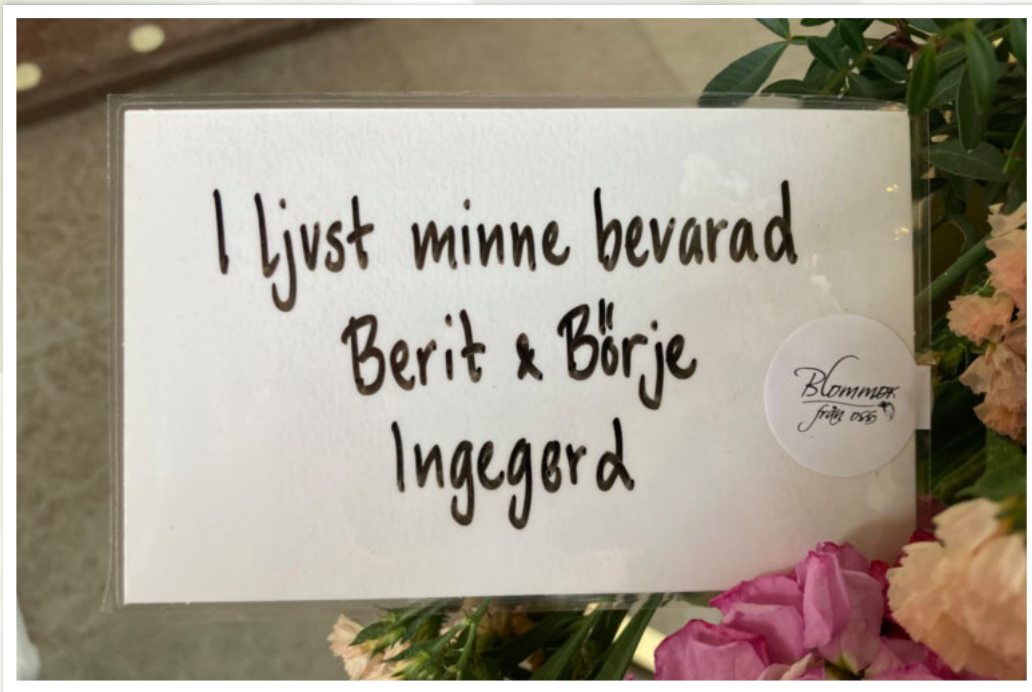 I ljust minne bevarad
Berit & Börje
Ingegerd
Blommor
från oss